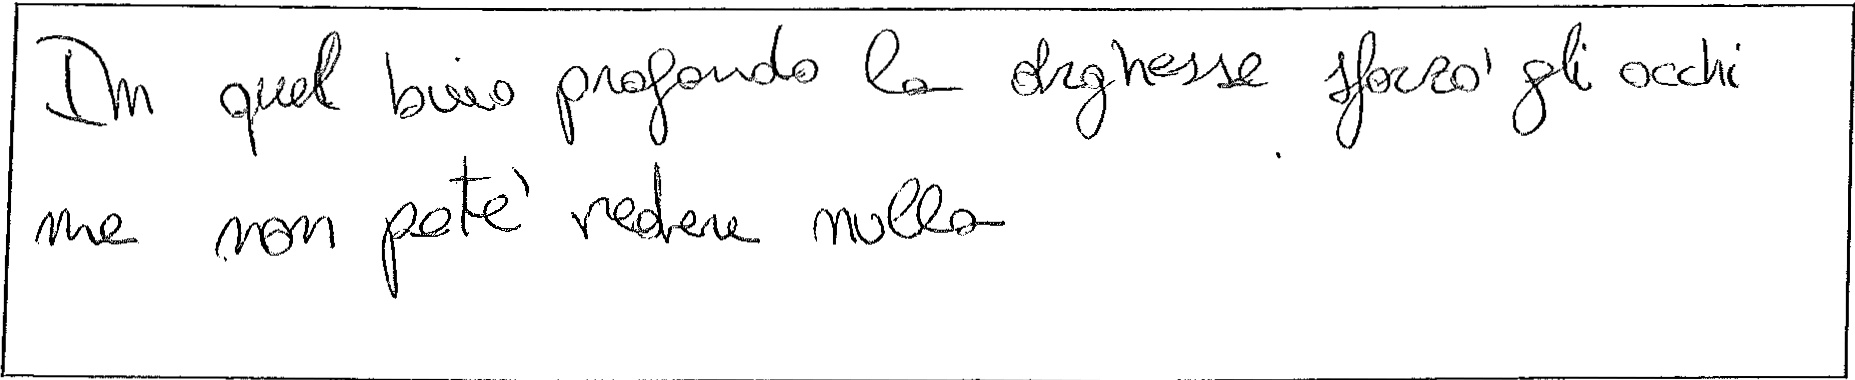 In quel buio profondo la duchessa sforzò gli occhi
ma non poté vedere nulla